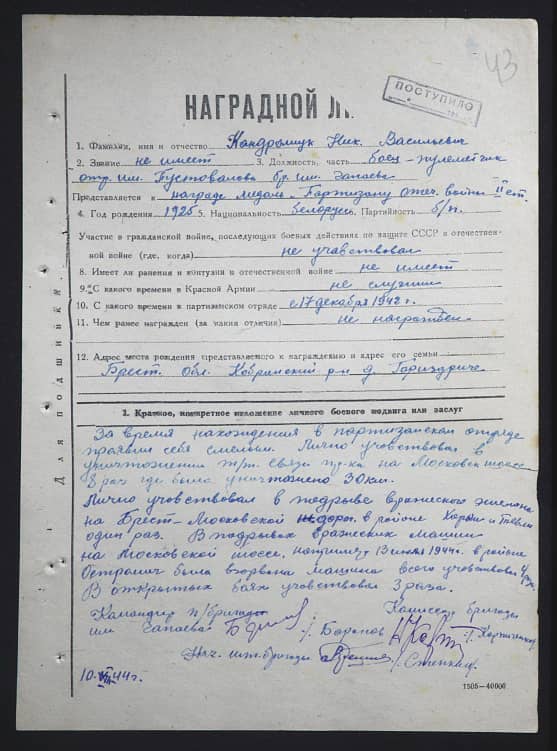 43
ПОСТУПИЛО
НАГРАДНОЙ Л
1. Фамилия, имя и отчество Кондрашук Ник. Васильевич
2. Звание не имеет 3. Должность, часть боец-пулеметчик
отр. им. Пустовалова бр. им. Чапаева
Представляется к награде медаль "Партизану отеч. войны" II ст.
4. Год рождения 1925 5. Национальность белорус. Партийность б/п.
Участие в гражданской войне, последующих боевых действиях по защите СССР и отечествен-
ной войне (где, когда) не учавствовал
8. Имеет ли ранения и контузии в отечественной войне не имеет
9. С какого времени в Красной Армии не служил
10. С какого времени в партизанском отряде с 17 декабря 1942 г.
11. Чем ранее награжден (за какия отличия) не награжден
12. Адрес места рождения представляемого к награждению и адрес его семьи
Брест. обл. Кобринский р-н д.
Для подшивки
1. Краткое, конкретное изложение личного боевого подвига или заслуг
За время нахождения в партизанском отряде
проявил себя смелым. Лично учавствовал в
уничтожении т/т. связи пр-ка на Московск. шоссе
8 раз где было уничтожено 30 км.
Лично учавствовал в подрыве вражеского эшелона
на Брест-Московской ж. дорог. в районе и Тевли
один раз. В подрывах вражеских машин
на Московской шоссе, например 13 июля 1944 г. в районе
была взорвана машина всего учавствовал 4 раза.
В открытых боях учавствовал 3 раза.
Командир п/бригады Комиссар бригады
им Чапаева /Баранов
Нач. шт. бригады
10. VIII 44 г.
1505-40000